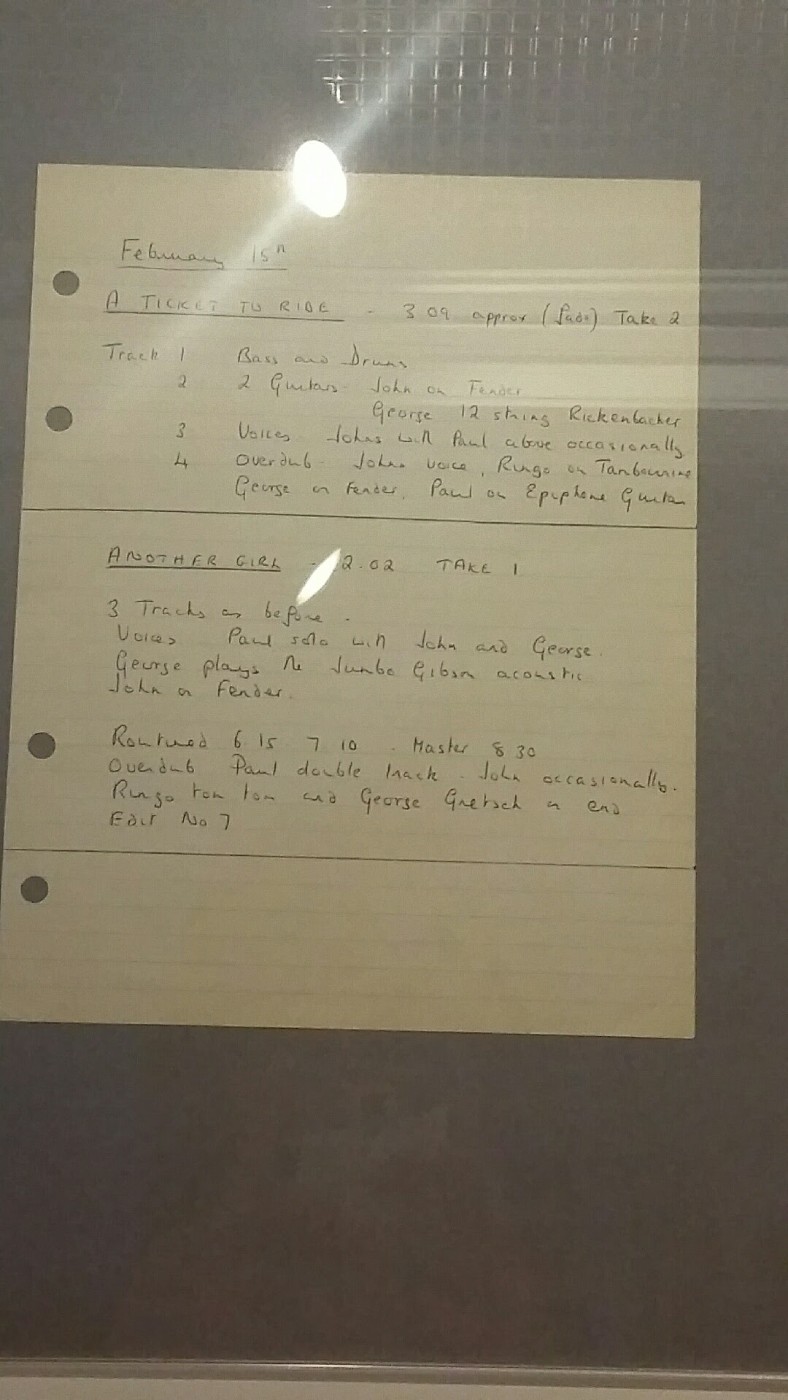 February 15th
A TICKET TO RIDE - 3 09 approx (fade) Take 2
Track 1 Bass and Drums
2 2 Guitars - John on Fender
George 12 string Rickenbacher
3 Voices Johns with Paul above occasionally
4 Overdub - Johns voice, Ringo on Tambourine
George on Fender, Paul on Epiphone Guitar
ANOTHER GIRL - 2.02 TAKE 1
3 Tracks as before.
Voices Paul solo with John and George.
George plays the Jumbo Gibson acoustic
John on Fender.
Routined 6 15 7 10 - Master 8 30
Overdub Paul double track - John occasionally.
Ringo tom tom and George Gretsch on end
Edit No 7